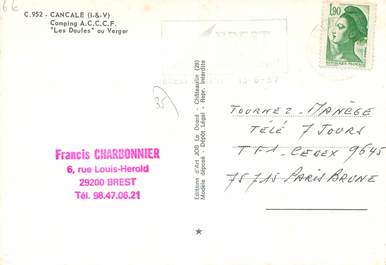 66
C.952 - CANCALE (I-&-V)
Camping A.C.C.C.F.
"Les Daules" au Verger
BREST
13-6-87
1,90
35)
Editions d'Art JOS Le Doaré - Châteaulin (29)
Modèle déposé - Dépôt Légal - Repr. Interdite
TOURNEZ. MANÈGE
TÉLÉ 7 JOURS
TF1- CEDEX 9645
75715-PARIS BRUNE
Francis CHARDONNIER
6, rue Louis-Herold
29200 BREST
Tél. 98.47.06.21